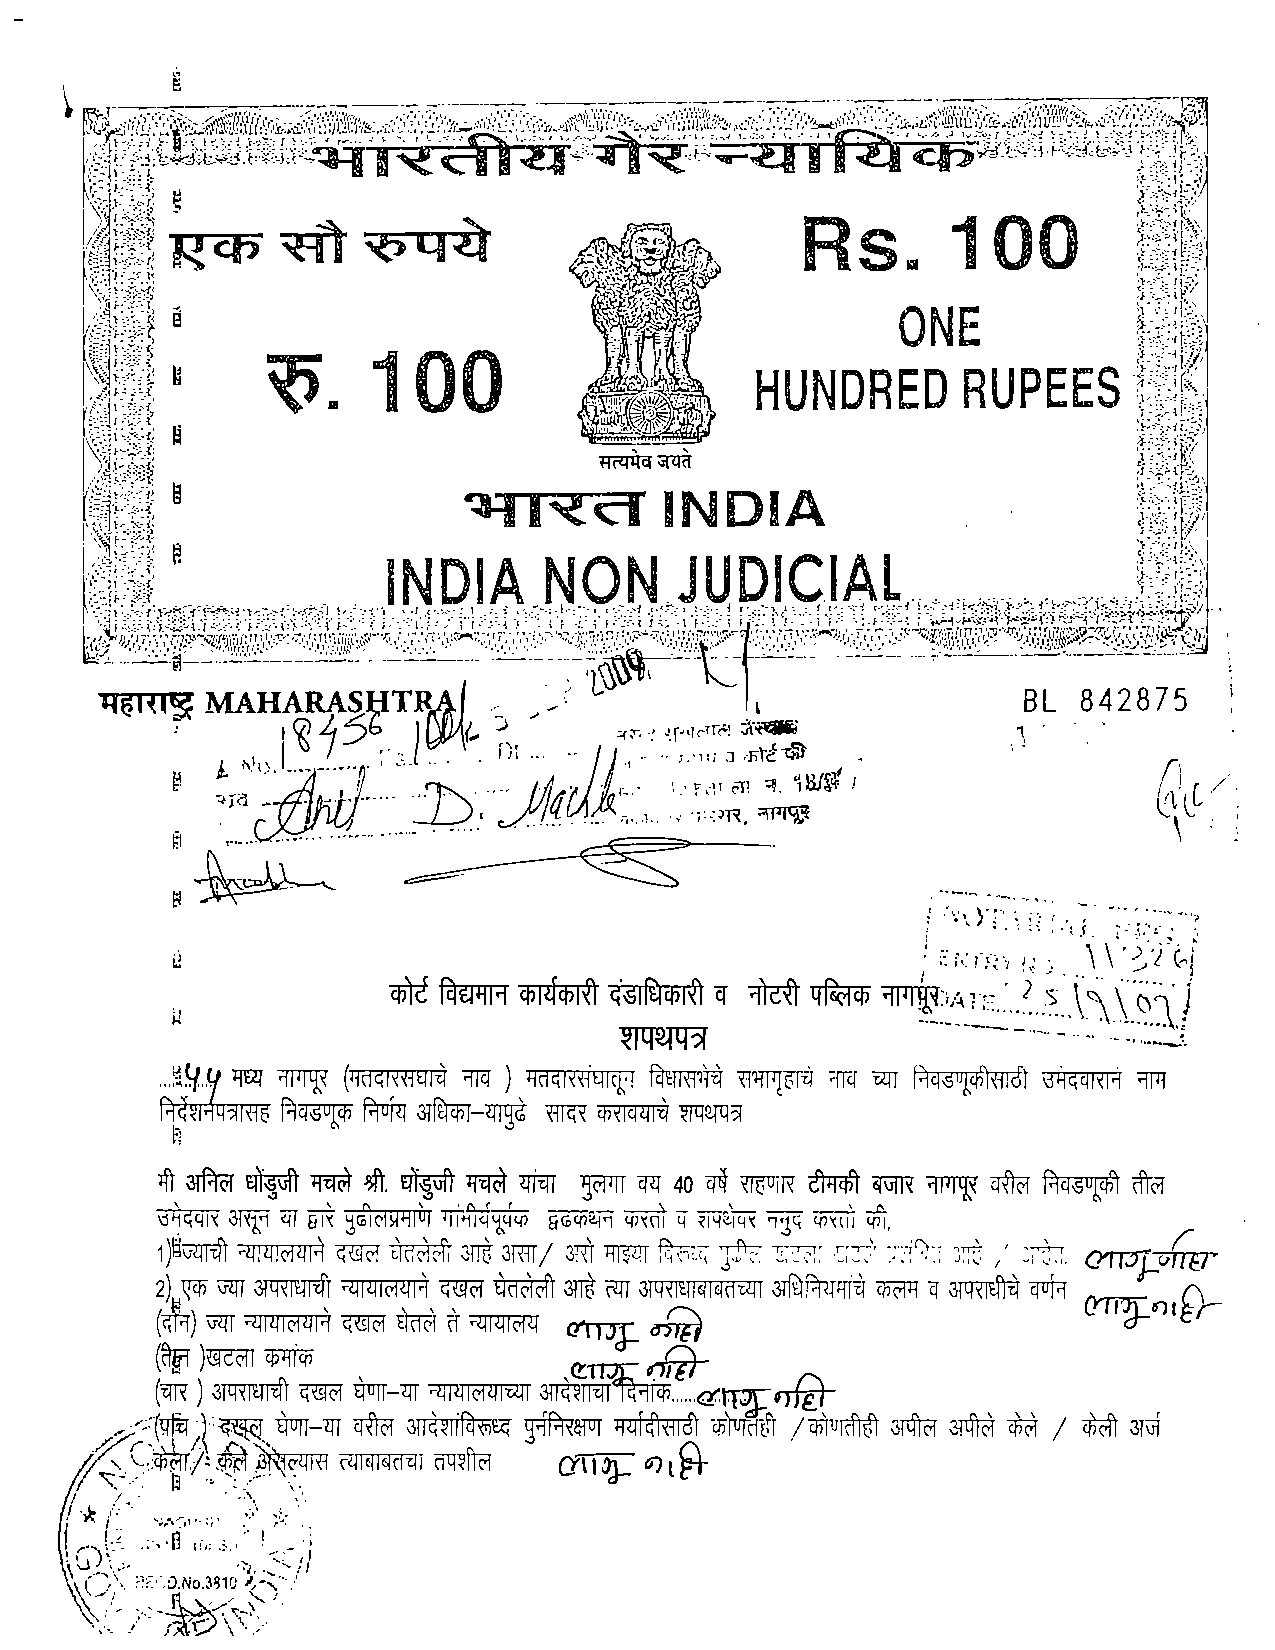 भारतीय गैर न्यायिक
एक सौ रुपये
Rs. 100
रु. 100
ONE
HUNDRED RUPEES
सत्यमेव जयते
भारत INDIA
INDIA NON JUDICIAL
2009
महाराष्ट्र MAHARASHTRA
BL 842875
No. 18456 100/-
Anil D. Machle
नागपूर
NOTARIAL
ENTRY NO. 11326
DATE 25/9/09
कोर्ट विद्यमान कार्यकारी दंडाधिकारी व नोटरी पब्लिक नागपूर
शपथपत्र
५५ मध्य नागपूर (मतदारसघाचे नाव ) मतदारसंघातून विधासभेचे सभागृहाचे नाव च्या निवडणूकीसाठी उमेदवारानं नाम
निर्देशनपत्रासह निवडणूक निर्णय अधिका-यापुढे सादर करावयाचे शपथपत्र
मी अनिल धोंडुजी मचले श्री. धोंडुजी मचले यांचा मुलगा वय 40 वर्षे राहणार टीमकी बजार नागपूर वरील निवडणूकी तील
उमेदवार असून या द्वारे पुढीलप्रमाणे गांभीर्यपूर्वक द्वढकथन करतो व शपथेवर ननुद करतो की,
1) ज्याची न्यायालयाने दखल घेतलेली आहे असा/ असे माझ्या विरूध्द पुढील खटला आहे / आहेत. लागु नाही
2) एक ज्या अपराधाची न्यायालयाने दखल घेतलेली आहे त्या अपराधाबाबतच्या अधिनियमांचे कलम व अपराधीचे वर्णन लागु नाही
(दोन) ज्या न्यायालयाने दखल घेतले ते न्यायालय लागु नाही
(तीन )खटला कमांक लागु नाही
(चार ) अपराधाची दखल घेणा-या न्यायालयाच्या आदेशाचा दिनांक...... लागु नाही
(पाच ) दखल घेणा-या वरील आदेशांविरूध्द पुर्ननिरक्षण मर्यादीसाठी कोणतेही /कोणतीही अपील अपीले केले / केली अर्ज
केला/ केले असल्यास त्याबाबतचा तपशील लागु नाही
REGD.No.3810